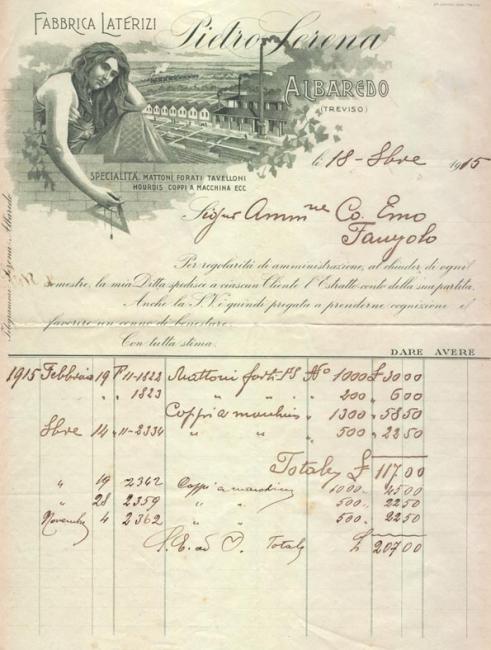 FABBRICA LATERIZI
Pietro Serena
ALBAREDO
(TREVISO)
SPECIALITÀ MATTONI FORATI TAVELLONI
HOURDIS COPPI A MACCHINA ECC
li 18 - 8bre 1915
Sigur Amm ne Co. Emo
Fanzolo
Telegrammi: Serena - Albaredo
Per regolarità di amministrazione, al chiuder di ogni
semestre, la mia Ditta spedisce a ciascun Cliente l'Estratto conto della sua partita.
Anche la S.V. è quindi pregata a prenderne cognizione e
favorire un cenno di benestare.
Con tutta stima.
DARE AVERE
1915 Febbraio 19 F 11-1822 Mattoni forti PS No 1000 £ 30 00
" " 1823 " " " " 200 " 6 00
Coppi a macchina " 1300 " 58 50
8bre 14 " 11-2334 " " " 500 " 22 50
Totale £ 117 00
" 19 " 2342 Coppi a macchina 1000 " 45 00
" 28 " 2359 " " 500 " 22 50
Novembre 4 " 2362 " " 500 " 22 50
S. E. ad O. Totale £ 207 00